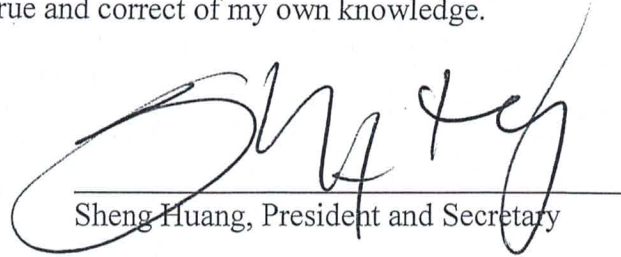 rue and correct of my own knowledge.
Sheng Huang, President and Secretary